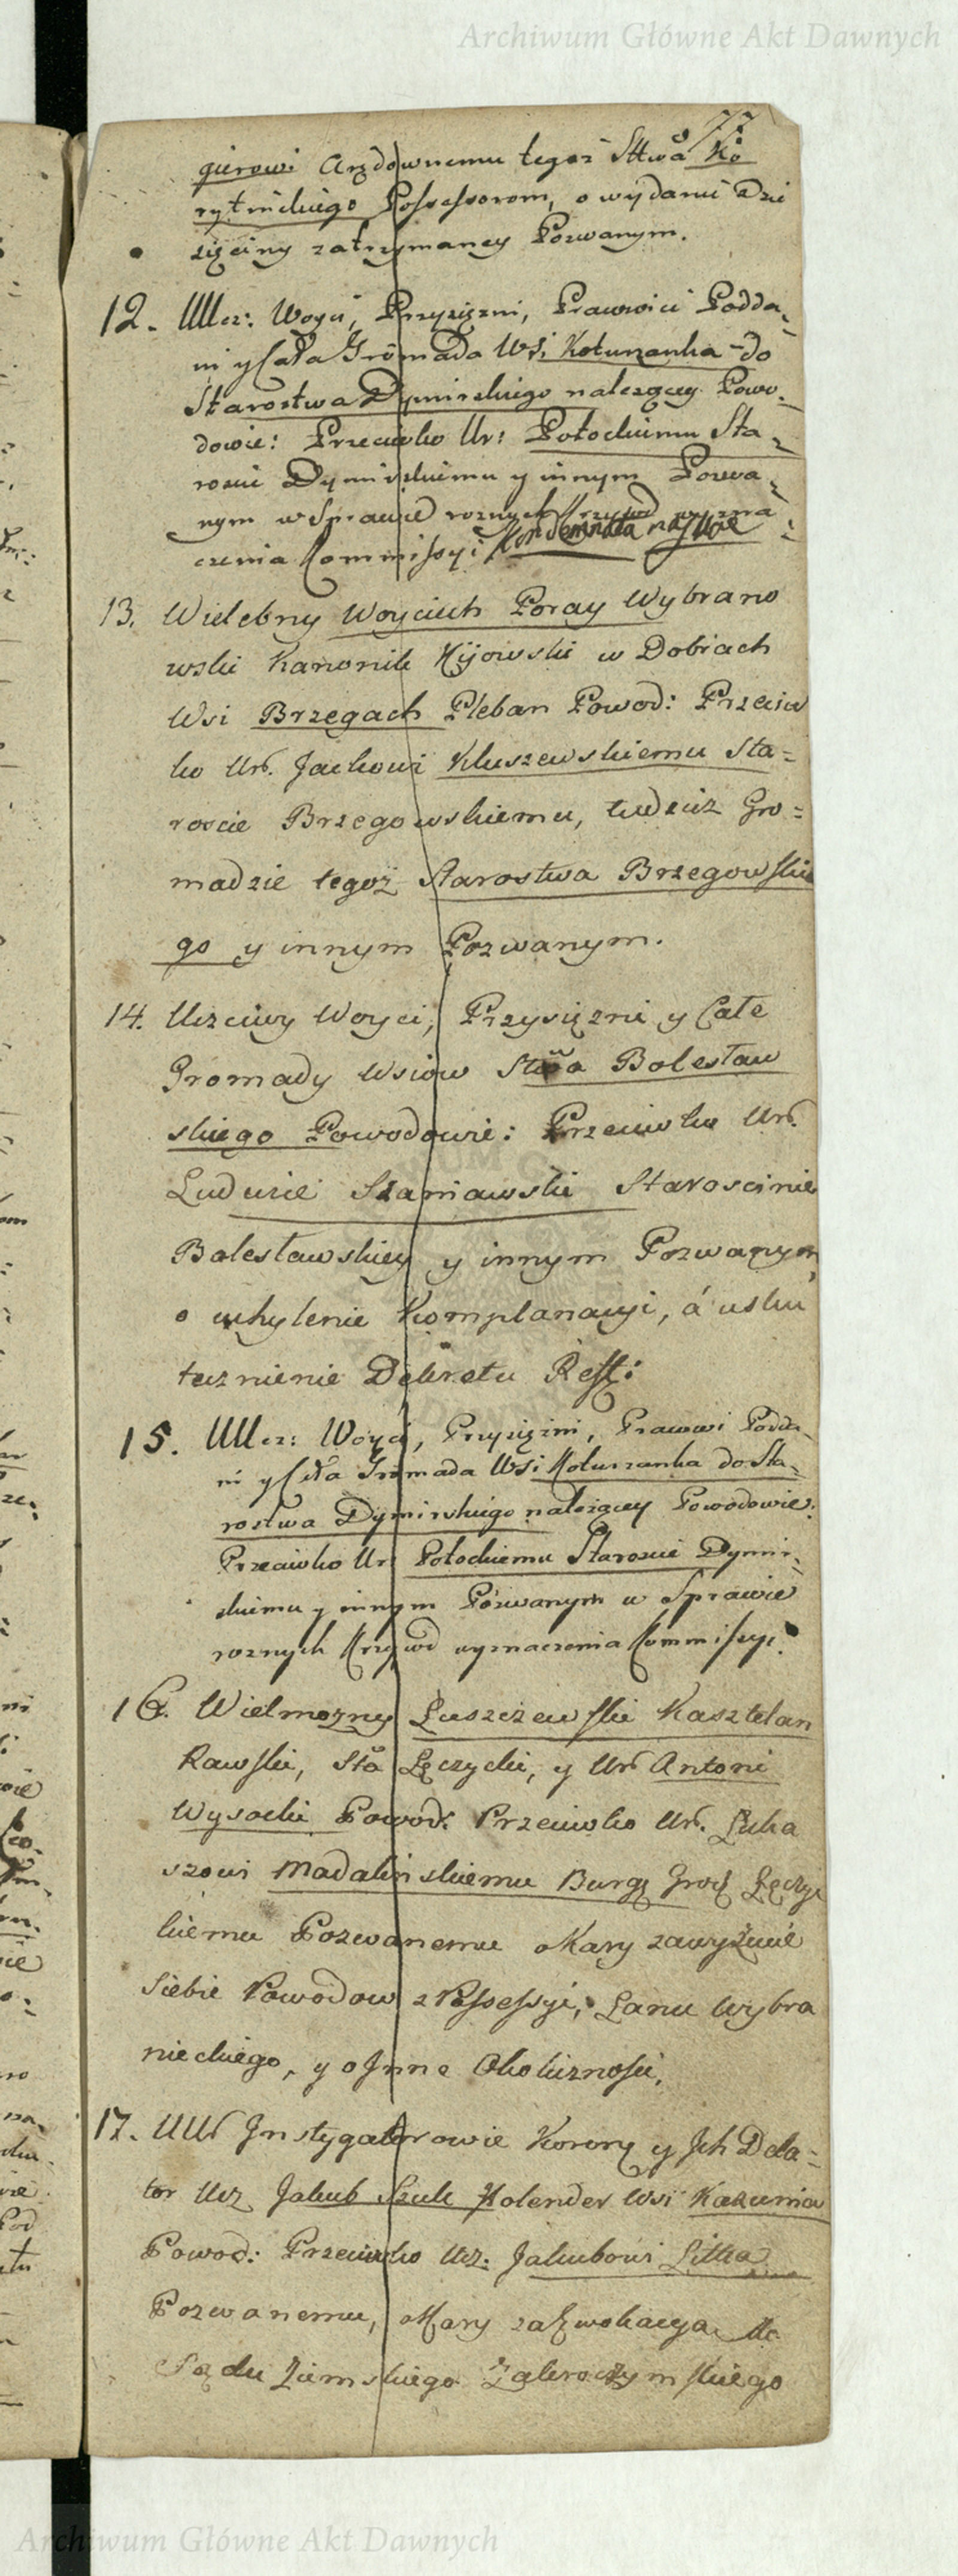 Archiwum Główne Akt Dawnych
77
gierowi Arędownemu tegoż Sttwa Ko
rytnickiego Possessorom, o wydanie Dzie
sięciny zatrzymaney Pozwanym.
12. UUcz: Woyci, Przysiężni, Prawowici Podda„
ni y Cała Gromada Wsi Kotuszanka do
Starostwa Dymirskiego należącey Powo„
dowie: Przeciwko Ur: Potockiemu Sta„
roście Dymirskiemu y innym Pozwa„
nym w Sprawie roznych Krzywd wyzna„
czenia Kommissyi Kondemnata na Zwie
13. Wielebny Woyciech Poray Wybrano
wski Kanonik Kijowski w Dobrach
Wsi Brzegach Pleban Powod: Przeciw
ko Ur. Jackowi Kluszewskiemu Sta=
roscie Brzegowskiemu, tudzież Gro=
madzie tegoż Starostwa Brzegowskie
go y innym Pozwanym.
14. Uczciwy Woyci, Przysiężni y Całe
Gromady Wsiow Sttwa Bolesław
skiego Powodowie: Przeciwko Ur.
Ludwice Szaniawski Starościnie
Bolesławskiey y innym Pozwanym
o uchylenie Komplanacyi, á usku
tecznienie Dekretu Reffl:
15. UUcz: Woyci, Przysiężni, Prawowi Podda„
ni y Cała Gromada Wsi Kotuszanka do Sta„
rostwa Dymirskiego należącey Powodowie:
Przeciwko Ur Potockiemu Staroscie Dymir„
skiemu y innym Pozwanym w Sprawie
roznych Krzywd wyznaczenia Kommissyi.
16. Wielmozny Łuszczewski Kasztelan
Rawski, Stå Łęczycki, y Ur Antoni
Wysocki Powod: Przeciwko Ur. Łuka
szowi Madalinskiemu Burgę Grodz Łęczyc
kiemu Pozwanemu o Kary za wyżucie
Siebie Powodow z Possessyi, Łanu Wybra
nieckiego, y o Inne Okoliczności.
17. UUr Instygatorowie Korony y Ich Dela=
tor Ucz Jakub Szulc Holender Wsi Kazunia
Powod: Przeciwko Ucz. Jakubowi Litka
Pozwanemu, o Kary za Ewokacya do
Sądu Ziemskiego Zakroczymskiego
Archiwum Główne Akt Dawnych